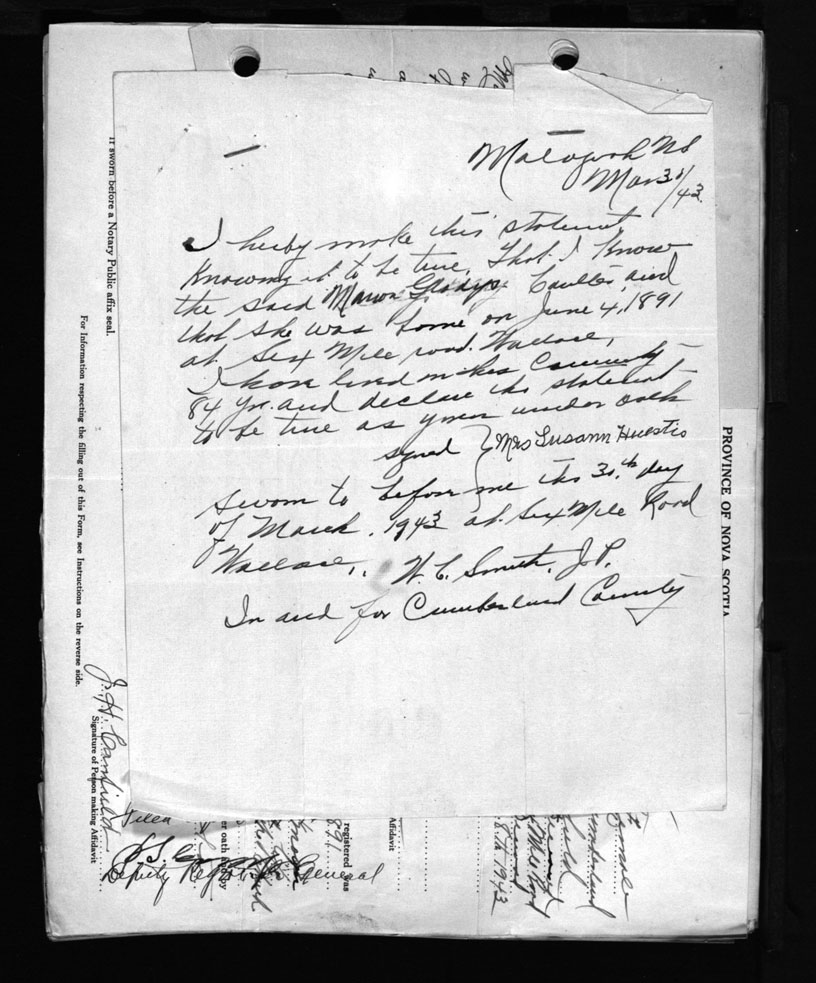 Malagash NS
Mar 30/43
I herby make this statment
Knowing it to be true, That I know
the said Marion Gladys Coulter, and
that she was borne on June 4, 1891
at Six Mile road. Wallace,
I have lived in this Community
84 yrs. and declare this statment
to be true as given under oath
signed } Mrs Susann Huestis
Sworn to before me this 30.th day
of March. 1943 at Six Mile Road
Wallace,. W. C. Smith, J. P.
In and for Cumberland County
PROVINCE OF NOVA SCOTIA
If sworn before a Notary Public affix seal.
For Information respecting the filling out of this Form, see Instructions on the reverse side.
J. H. Canfield
Signature of Person making Affidavit
Deputy Registrar General
er oath
registered was
891
Affidavit
umberland
8th 1943